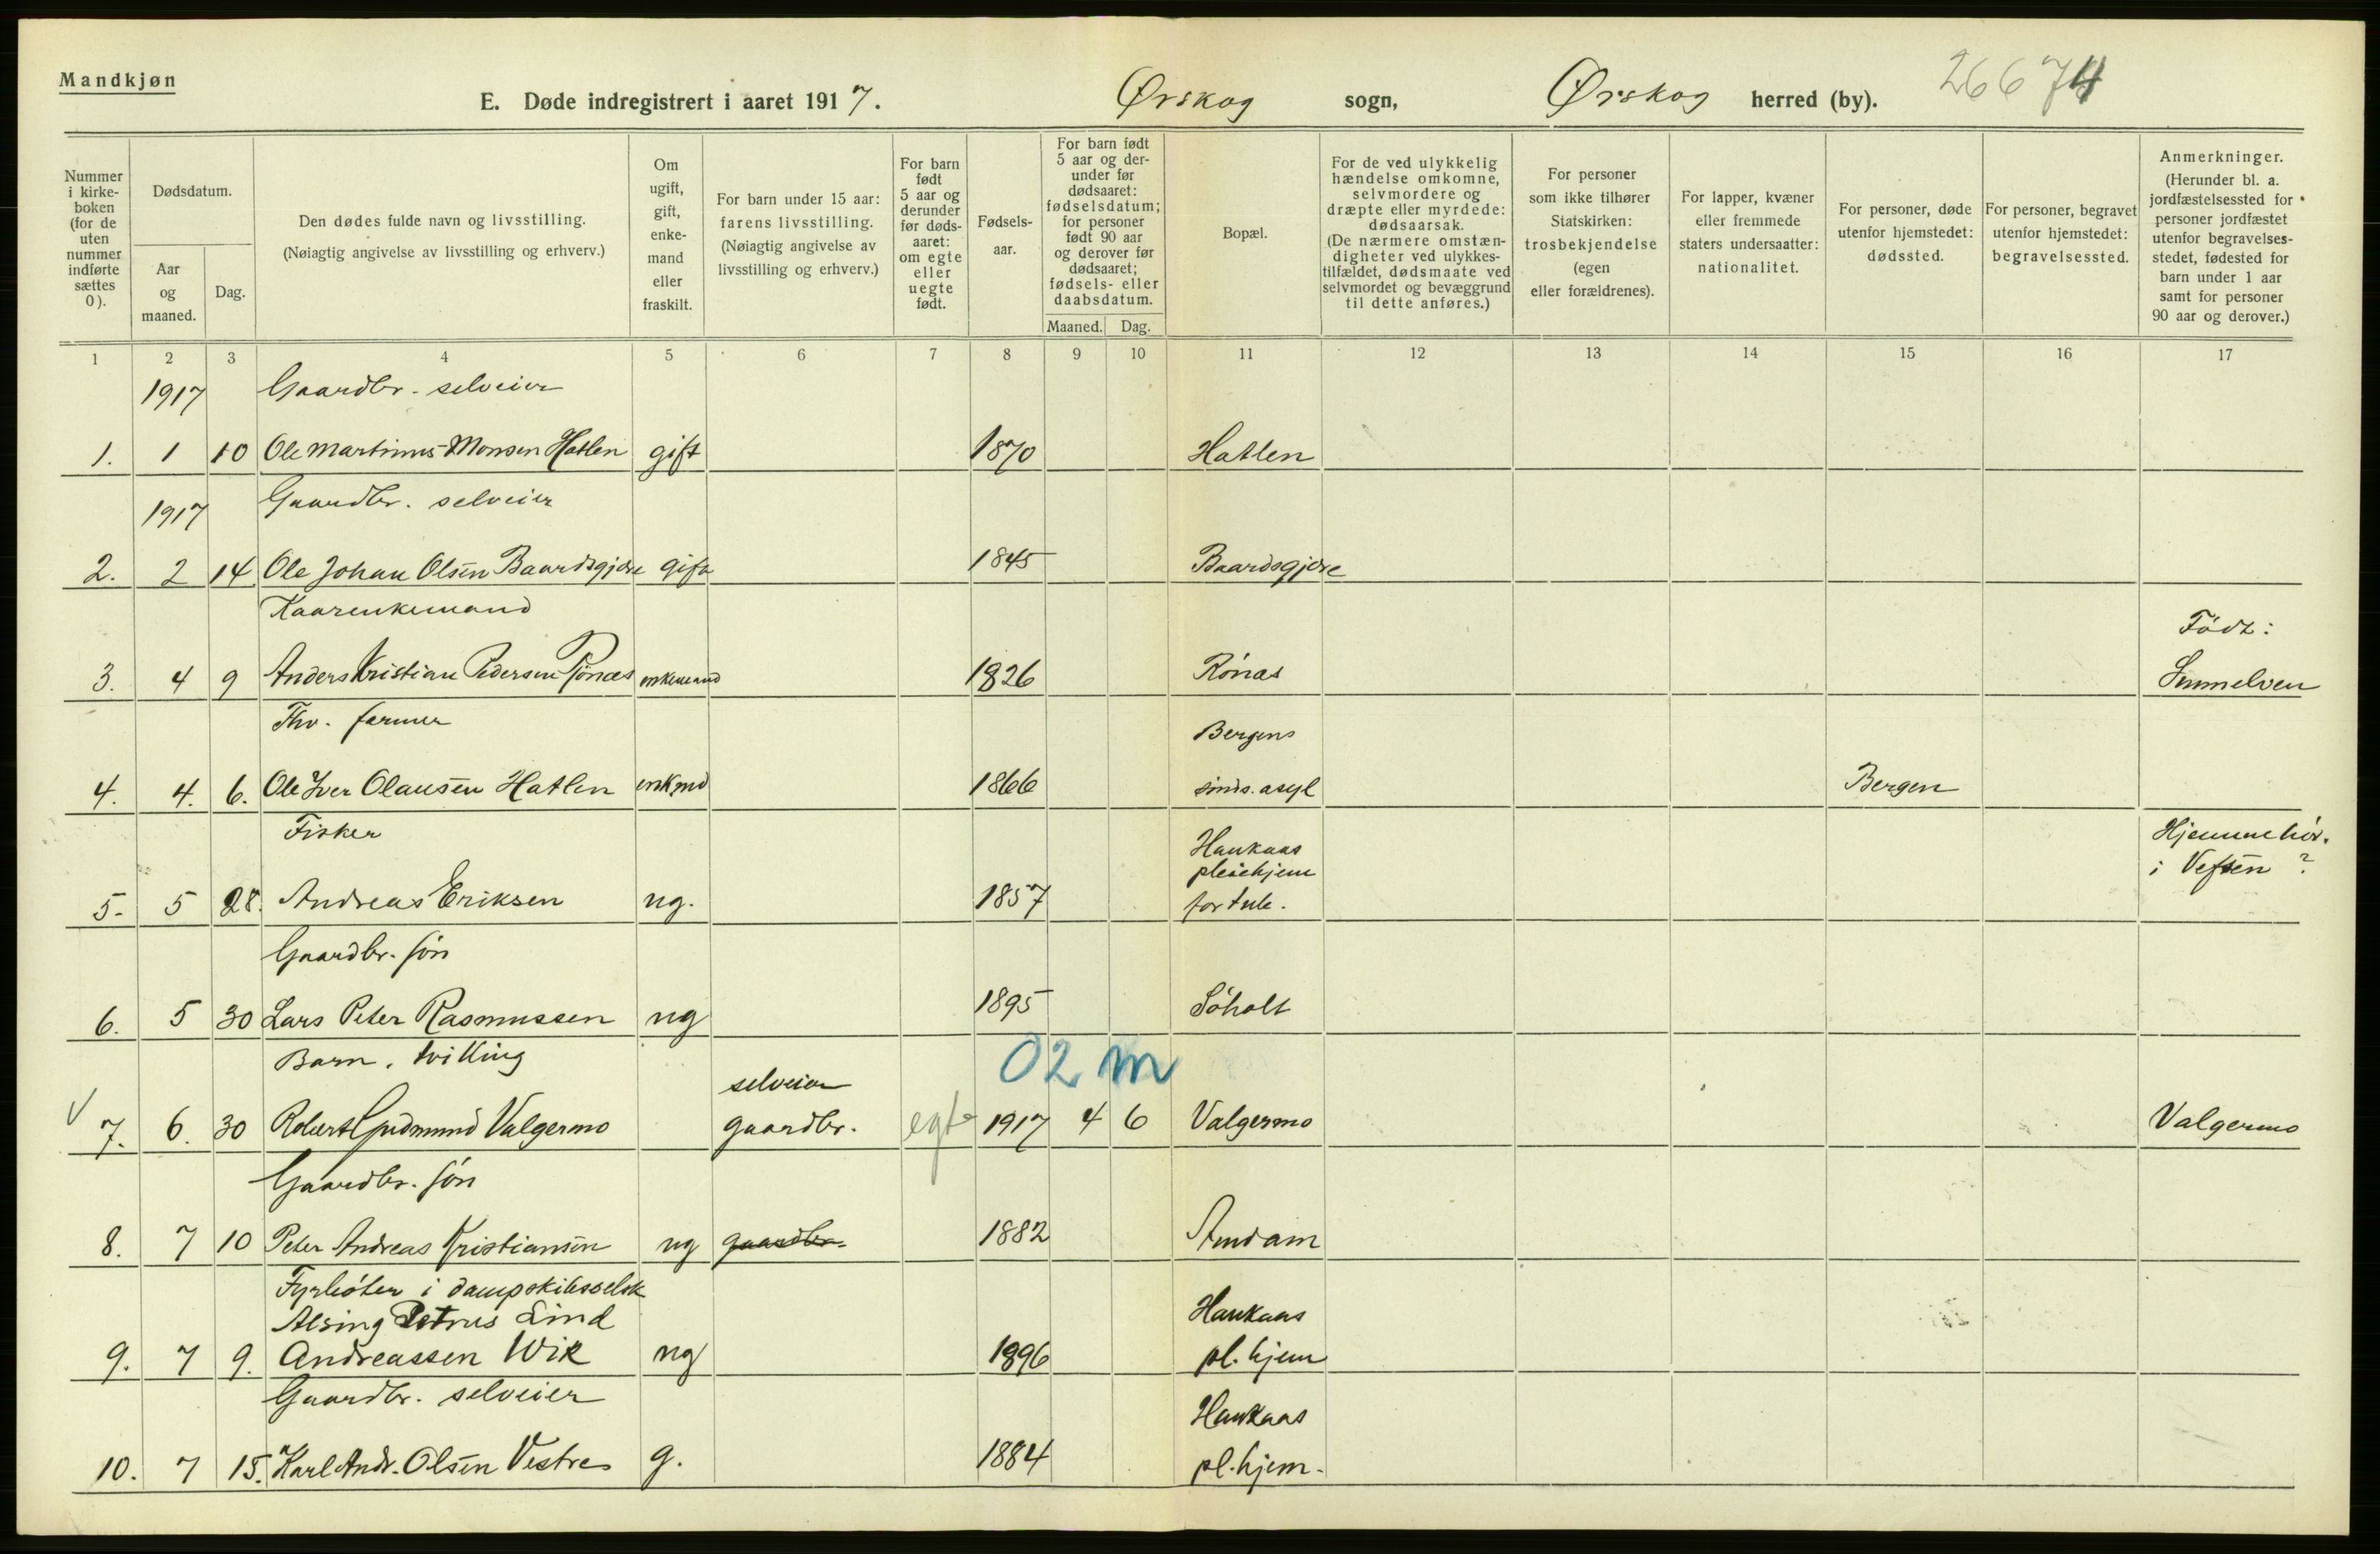 Mandkjøn
E. Døde indregistrert i aaret 1917. Ørskog sogn, Ørskog herred (by). 26674
Nummer i kirke-boken (for de uten nummer indførte sættes 0).
Dødsdatum.
Aar og maaned.
Dag.
Den dødes fulde navn og livsstilling.
(Nøiagtig angivelse av livsstilling og erhverv.)
Om ugift, gift, enke-mand eller fraskilt.
For barn under 15 aar: farens livsstilling. (Nøiagtig angivelse av livsstilling og erhverv.)
For barn født 5 aar og derunder før døds-aaret: om egte eller uegte født.
Fødsels-aar.
For barn født 5 aar og der-under før dødsaaret: fødselsdatum; for personer født 90 aar og derover før dødsaaret; fødsels- eller daabsdatum.
Maaned. Dag.
Bopæl.
For de ved ulykkelig hændelse omkomne, selvmordere og dræpte eller myrdede: dødsaarsak. (De nærmere omstæn-digheter ved ulykkes-tilfældet, dødsmaate ved selvmordet og bevæggrund til dette anføres.)
For personer som ikke tilhører Statskirken: trosbekjendelse (egen eller forældrenes).
For lapper, kvæner eller fremmede staters undersaatter: nationalitet.
For personer, døde utenfor hjemstedet: dødssted.
For personer, begravet utenfor hjemstedet: begravelsessted.
Anmerkninger. (Herunder bl. a. jordfæstelsessted for personer jordfæstet utenfor begravelses-stedet, fødested for barn under 1 aar samt for personer 90 aar og derover.)
1 2 3 4 5 6 7 8 9 10 11 12 13 14 15 16 17
1917 Gaardbr. selveier
1. 1 10 Ole Martinus Monsen Hatlen gift 1870 Hatlen
1917 Gaardbr. selveier
2. 2 14 Ole Johan Olsen Baardsgjære gift 1845 Baardsgjære
Kaarenkemand Født:
3. 4 9 Anders Kristian Pedersen Rønæs enkemand 1826 Rónæs Sunnelven
Fhv. farmer Bergens
4. 4. 6. Ole Iver Olausen Hatlen enkmd 1866 sinds. asyl Bergen
Fisker Haukaas Hjemmehør.
pleiehjem i Vefsen ?
5. 5 28. Andreas Eriksen ug. 1857 for tub.
Gaardbr. søn
6. 5 30 Lars Peter Rasmussen ug 1895 Søholt
Barn. tvilling 02 m
selveier
√ 7. 6. 30 Robert Gudmund Valgermo gaardbr. egte 1917 4 6 Valgermo Valgermo
Gaardbr. søn
8. 7 10 Peter Andreas Kristiansen ug gaardbr. 1882 Amdam
Fyrbøter i dampskibsselsk
Alsing Petrus Lind Haukaas
9. 7 9. Andreassen Wik ug 1896 pl. hjem
Gaardbr. selveier Haukaas
10. 7 15. Karl Andr. Olsen Vestre g. 1884 pl. hjem.